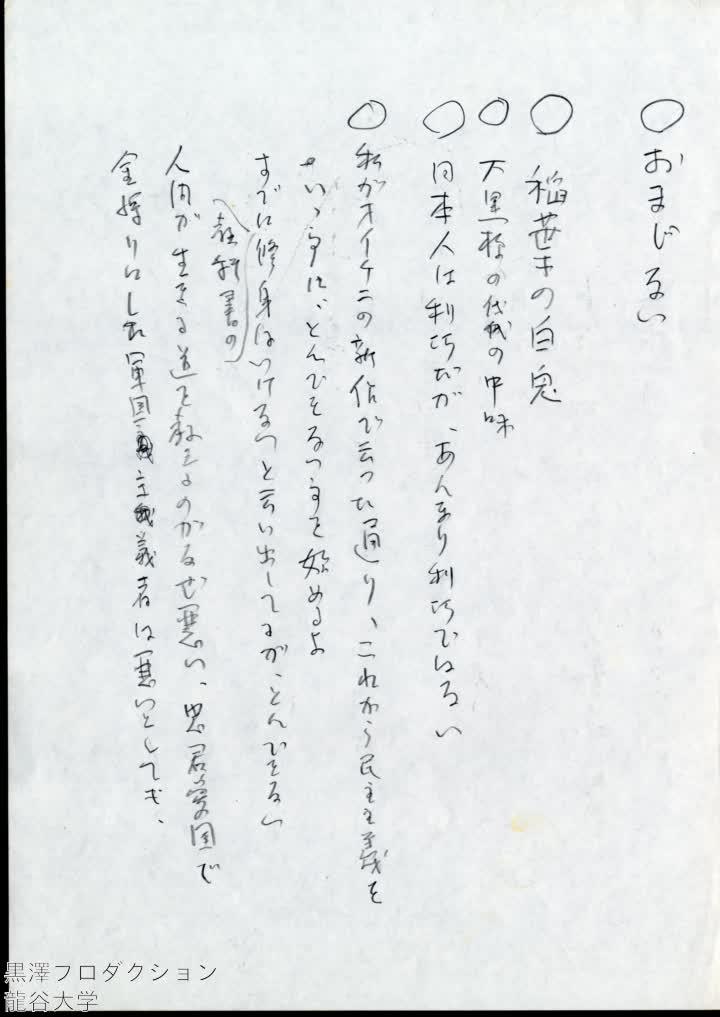 ○ おまじない
○ 稲葉の白兎
○ 大黒様の袋の中味
○ 日本人は利巧だが、あんまり利巧ではない
○ 私がオイケニの新佑で云った通り、これから民主主義を
せいゝ事に、とんでもない事を始めるよ
すでに修身はいけないと云い出してるが、とんでもない
教科書の
人間が生きる道を教えるのがなぜ悪い、忠君愛国で
金搾りにした軍国主義者は悪いとしても、
黒澤プロダクション
龍谷大学